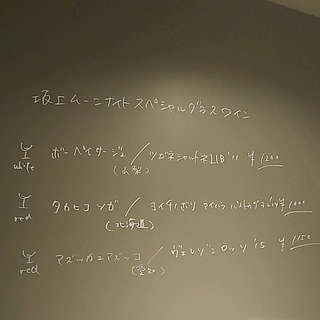 坂エムーンナイトスペシャルグラスワイン
white ボーペイサージュ / ツガネシャルドネLIB'11 ¥1200
(山梨)
red タカヒコソガ / ヨイチノボリ ¥1000
(北海道)
red アズッカエアズッコ / '15 ¥1150
(愛知)